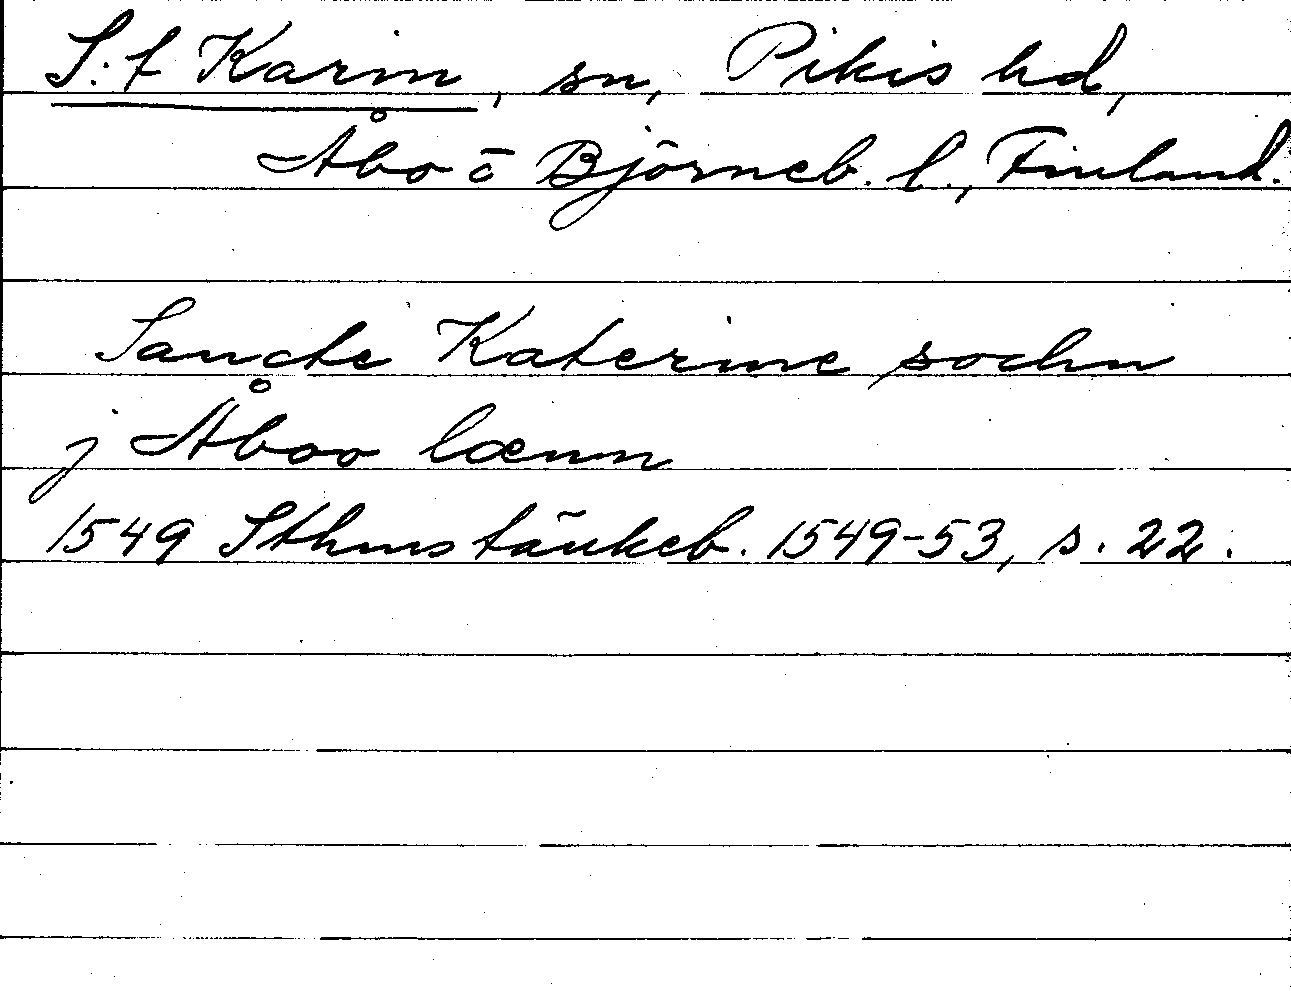 S:t Karin, sn, Pikis hd,
Åbo o Björneb. l., Finland.
Sancte Katerine sochn
j Åboo lænn
1549 Sthms tänkeb. 1549-53, s. 22.